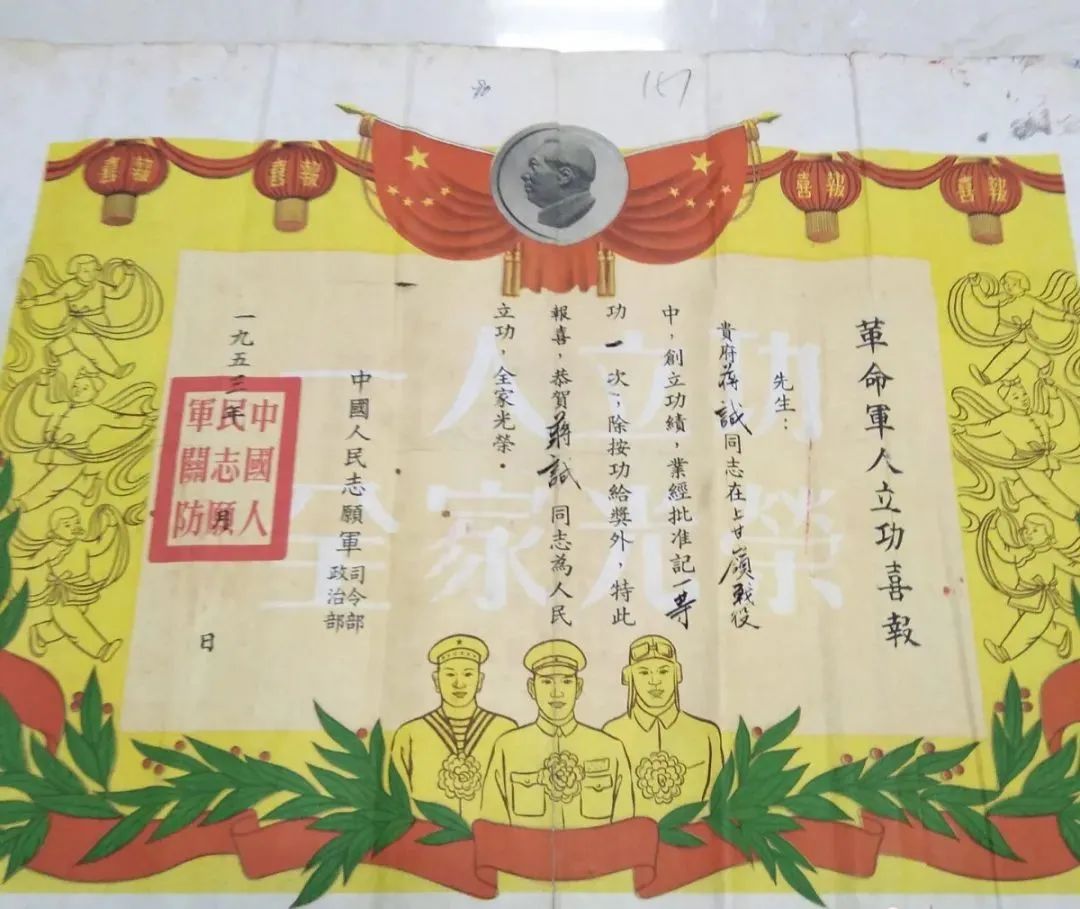 喜報
喜報
喜報
喜報
革命軍人立功喜報
先生：
貴府蔣誠同志在上甘嶺戰役
中，創立功績，業經批准記一等
功一次；除按功給獎外，特此
報喜，恭賀蔣誠同志為人民
立功，全家光榮．
中國人民志願軍司令部
政治部
一九五三年 月 日
中國人
民志願
軍關防
一人立功
全家光榮